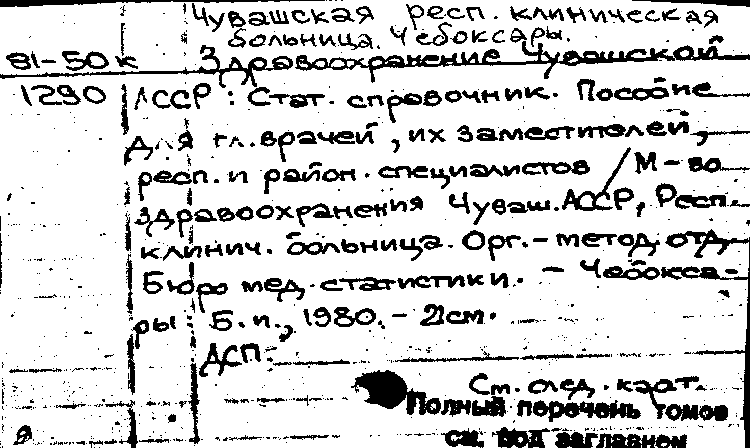 Чувашская респ. клиническая
больница. Чебоксары.
81-50к Здравоохранение Чувашской
1290 АССР: Стат. справочник. Пособие
для гл. врачей, их заместителей,
респ. и район. специалистов / М-во
здравоохранения Чуваш. АССР, Респ.
клинич. больница. Орг.-метод. отд,
Бюро мед. статистики. - Чебокса-
ры: Б. и., 1980. - 21см.
ДСП.
См. след. карт.
Полный перечень томов
см. под заглавием